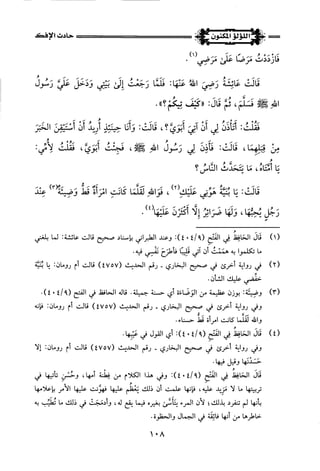 اللؤلؤ المكنون
حادث الإفك
فَازْدَدْتُ مَرَضًا عَلَى مَرَضِي(١).
قَالَتْ عَائِشَةُ رَضِيَ اللهُ عَنْهَا: فَلَمَّا رَجَعْتُ إِلَى بَيْتِي وَدَخَلَ عَلَيَّ رَسُولُ
اللهِ ﷺ فَسَلَّمَ، ثُمَّ قَالَ: «كَيْفَ تِيكُمْ؟».
فَقُلْتُ: أَتَأْذَنُ لِي أَنْ آتِيَ أَبَوَيَّ؟، قَالَتْ: وَأَنَا حِينَئِذٍ أُرِيدُ أَنْ أَسْتَيْقِنَ الخَبَرَ
مِنْ قِبَلِهِمَا، قَالَتْ: فَأَذِنَ لِي رَسُولُ اللهِ ﷺ، فَجِئْتُ أَبَوَيَّ، فَقُلْتُ لِأُمِّي:
يَا أُمَّتَاهُ، مَا يَتَحَدَّثُ النَّاسُ؟
قَالَتْ: يَا بُنَيَّةُ هَوِّنِي عَلَيْكِ(٢)، فَوَاللهِ لَقَلَّمَا كَانَتِ امْرَأَةٌ قَطُّ وَضِيئَةٌ(٣) عِنْدَ
رَجُلٍ يُحِبُّهَا، وَلَهَا ضَرَائِرُ إِلَّا أَكْثَرْنَ عَلَيْهَا(٤).
(١) قَالَ الحَافِظُ فِي الفَتْحِ (٤٠٤/٩): وعند الطبراني بإسناد صحيح قالت عائشة: لما بلغني
ما تكلموا به هَمَمْتُ أن آتي قَلِيبًا فأطرح نفسي فيه.
(٢) في رواية أخرى في صحيح البخاري ـ رقم الحديث (٤٧٥٧) قالت أم رُومان: يا بُنَيَّة
خفضي عليكِ الشأن.
(٣) وضِيئَة: بوزن عظيمة من الوَضَاءَةِ أي حسنة جميلة. قاله الحافظ في الفتح (٤٠٤/٩).
وفي رواية أخرى في صحيح البخاري ـ رقم الحديث (٤٧٥٧) قالت أم رُومان: فإنه
والله لَقَلَّمَا كانت امرأة حسناء.
(٤) قَالَ الحَافِظُ فِي الفَتْحِ (٤٠٤/٩): أي القول في عَيبها.
وفي رواية أخرى في صحيح البخاري ـ رقم الحديث (٤٧٥٧) قالت أم رُومان: إلَّا
حَسَدْنَها وقيل فيها.
قَالَ الحَافِظُ فِي الفَتْحِ (٤٠٤/٩): وفي هذا الكلام من فِطنة أمها، وحُسن تَأَتِّيها في
تربيتها ما لا مزيد عليه، فإنها علمت أن ذلك يَعْظُم عليها فهونت عليها الأمر بإعلامها
بأنها لم تنفرد بذلك، لأن المرء يتأسَّى بغيره فيما يقع له، وأدمَجَتْ في ذلك ما تُطَيِّب به
خاطرها من أنها فائقة في الجمال والحظوة.
١٠٨